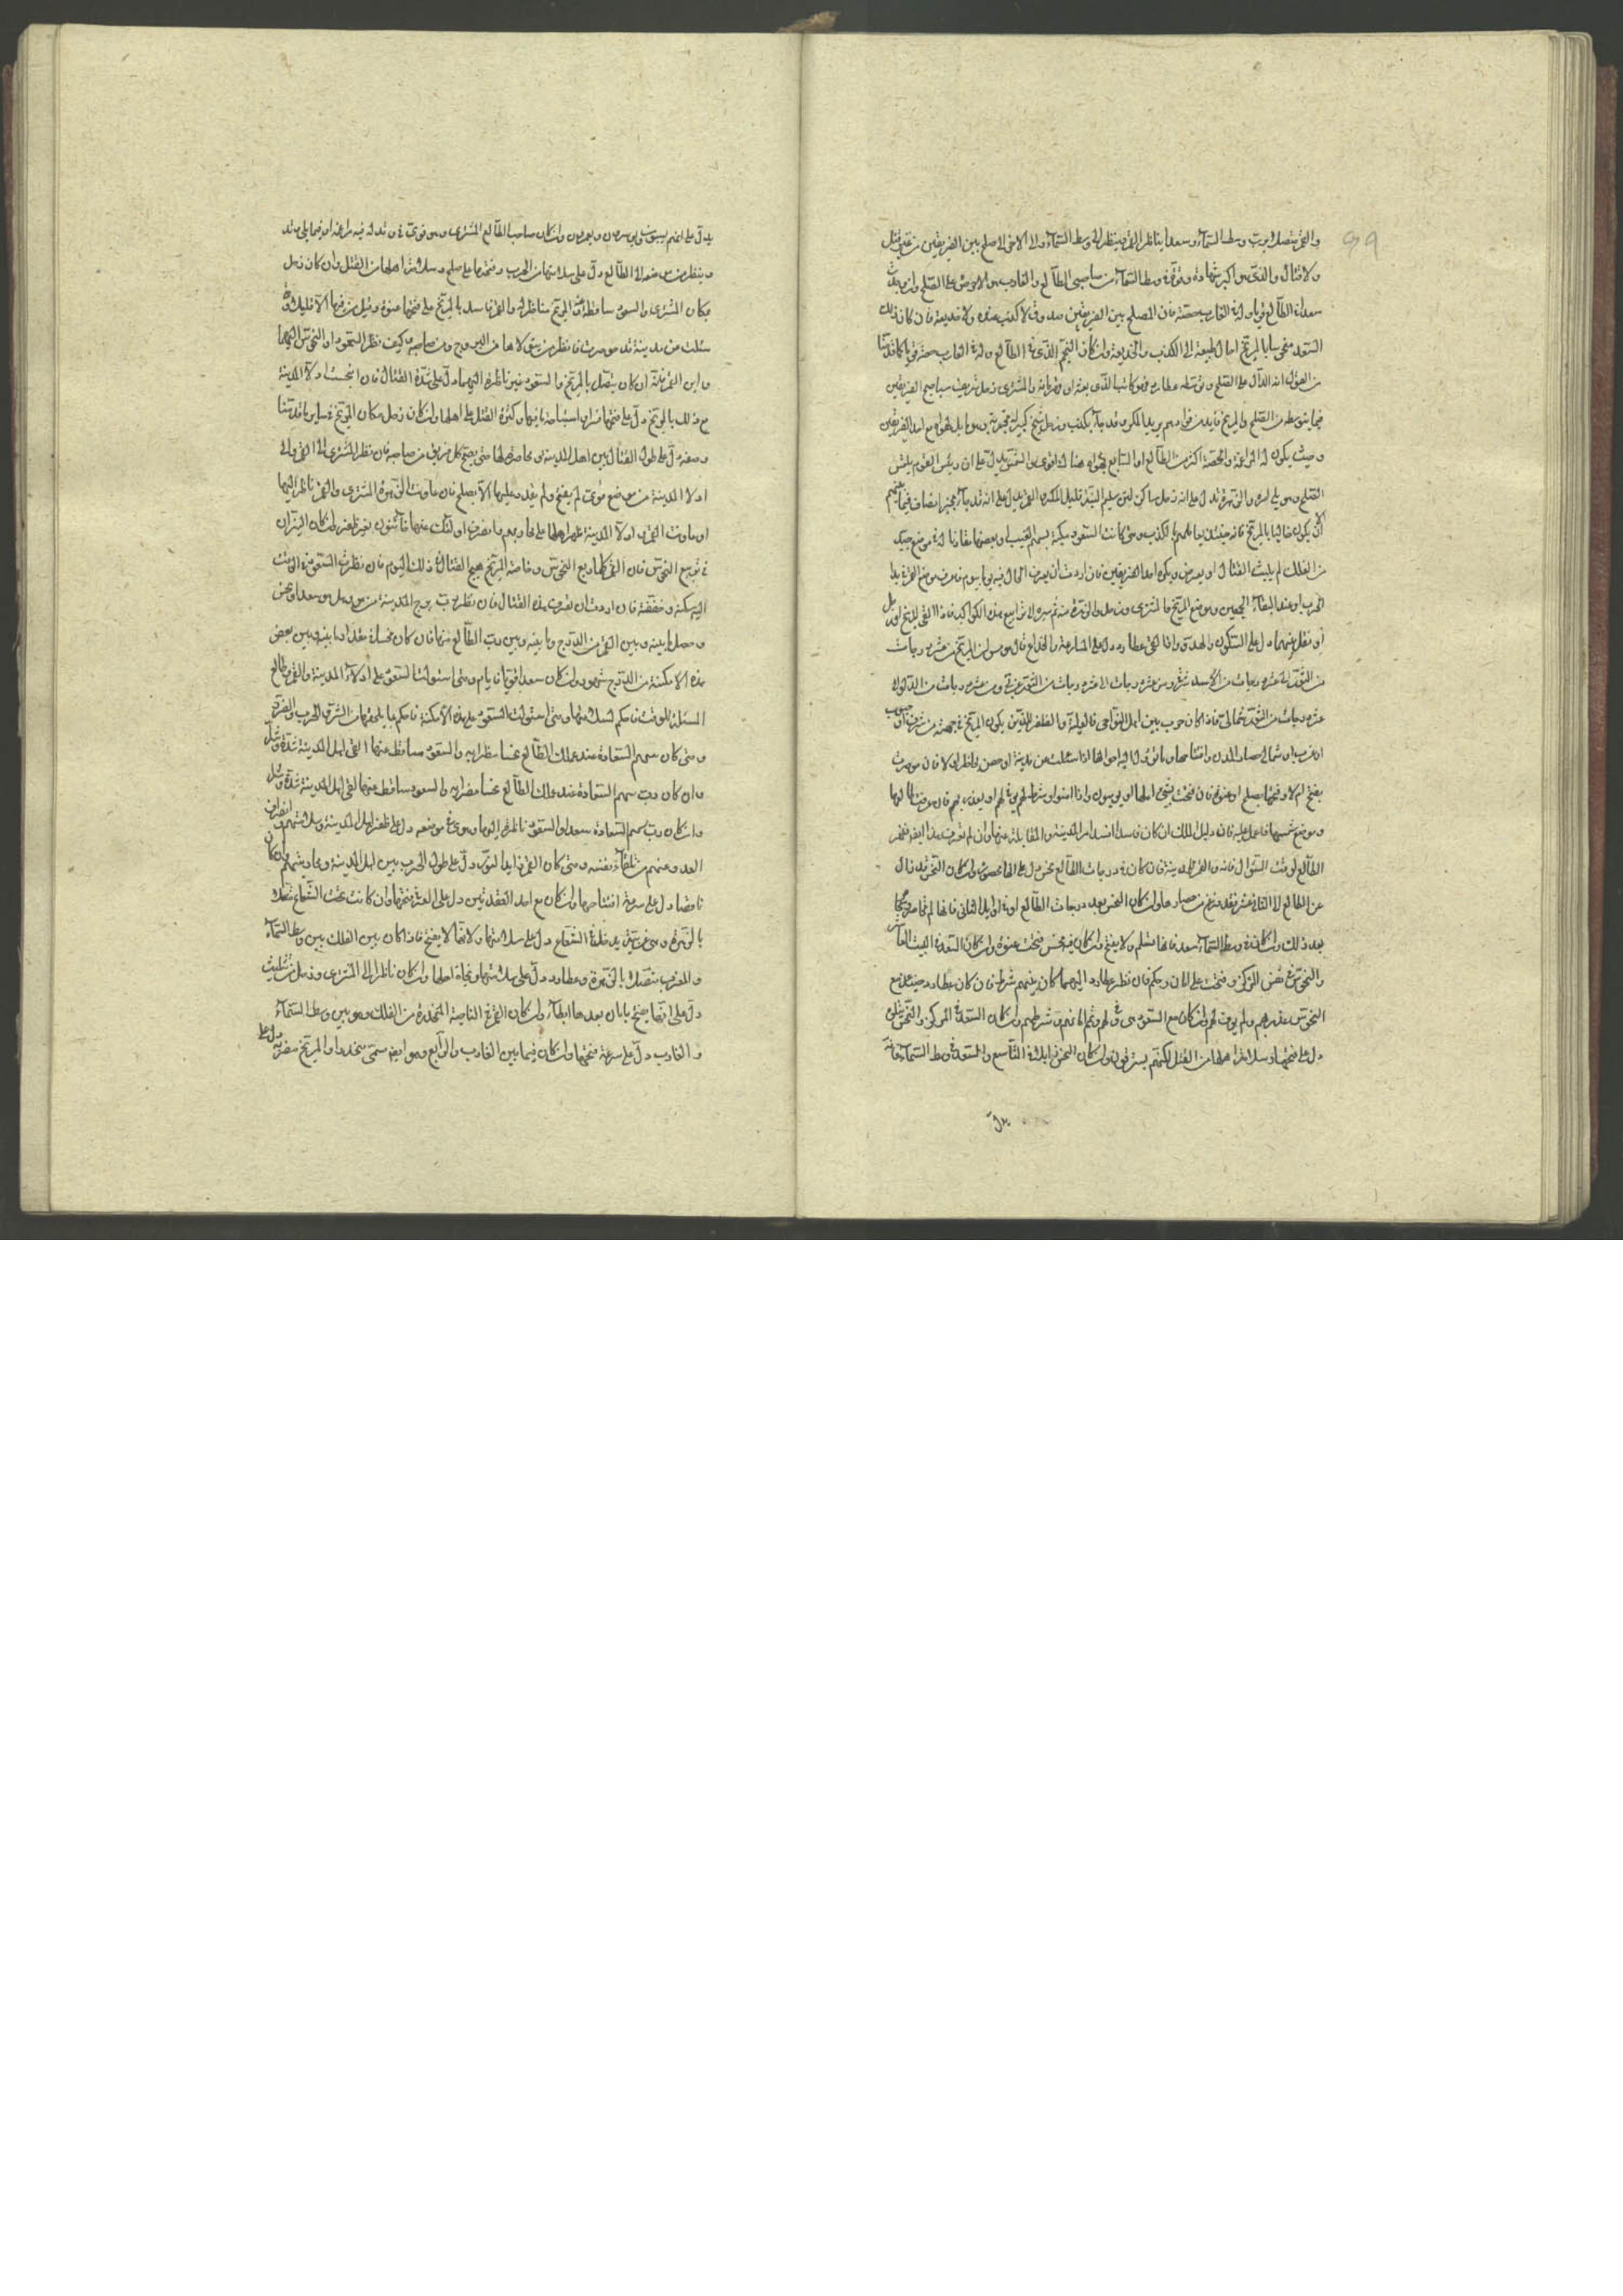 والقمر يتصل برب وسط السماء وسعد يناظر القمر وينظر الى وسط السماء والى الآخر الاصلح بين الفريقين من غير قتل
ولا قتال والذي هو اكبر شهادة وقوة في وسط السماء من صاحبي الطالع والغارب هو الاحرص على الصلح وان وجدت
سعدا في الطالع قويا وله في الغارب حصة فان المصلح بين الفريقين صدوق لا كذب عنده ولا خديعة فان كان ذلك
السعد منحوسا بالمريخ احال طبيعته الى الكذب والخديعة وان كان النجم الذي في الطالع وله في الغارب حصة قويا كما قدمنا
من القول انه الدال على الصلح ومتوسطه عطارد فهو كاتب الذي بعثه او قهرمانه والمشتري رجل شريف سيد صاحب الفريقين
فيما يتوسطه من الصلح والمريخ قايد من قوادهم يريد المكر وقد جاء بكذب وزحل شيخ كبير له تجربة وهو مايل بهواه مع احد الفريقين
وحيث يكون له المزاعمة والحصة اكثر من الطالع او السابع فهواه هناك اقوى والشمس يدل على ان رئيس القوم يلتمس
الصلح وهو يلي امره والزهرة تدل على انه رجل ساكن لين سليم اليد قليل المكر والقمر يدل على انه قد جاء بخبر انصاف فيما بينهم
الا ان يكون مخالطا بالمريخ فانه حينئذ يعاملهم بالكذب ومتى كانت السعود ممكنة بسهم الغيب او بعضها مقارنا له في موضع جيد
من الفلك لم يلبث القتال او يعرض ويكره احد الفريقين فان اردت ان تعرف الحال فيه يوما بيوم فاعرف موضع القمر في بدا
الحرب او عند التقاء الجمعين وموضع المريخ والمشتري وزحل والزهرة منه ثم سيره لا تراجع بهذه الكواكب فاذا لقي المريخ او زحل
او نقل بينهما دل على السكون والهدو واذا لقي عطارد دل على المسارعة والخداع قال هرمس ان المريخ من عشرة درجات
من الثور الى عشرة درجات من الاسد شرقي ومن عشرة درجات الى عشرة درجات من العقرب غربي ومن عشرة درجات من الدلو الى
عشرة درجات من الثور شمالي فاذا كان حرب بين اهل النواحي فالغلبة والظفر للذين يكون المريخ في جهته من شرق او جنوب
او غرب او شمال حصار المدن وافتتاحها وما تؤول اليه احوالها اذا سئلت عن مدينة او حصن فانظر الى لا فان حوصرت
يفتح ام لا وفتحها بصلح او عنوة فان فتحت ينجي اهلها او يوسرون واذا امنوا وشرط لهم يوفى لهم او يغدر بهم فان عرفت طالعها
وموضع شمسها فاعمل عليه فان دليل الملك ان كان فاسدا افسد امر المدينة والمقابلة عنها وان لم تعرف هذا ايضا فخذ
الطالع لوقت السؤال فانه والقمر للمدينة فان كان في درجات الطالع نحس دل على انها محصورة وان كان النحس قد زال
عن الطالع الى الثاني عشر فقد فرغ من حصارها وان كان النحس بعد درجات الطالع او في اوايل الثاني فانها لم تحاصر وتحاصر
بعد ذلك وان كان في وسط السماء سعد فانها تسلم ولا يفتح وان كان فيه نحس فتحت عنوة وان كان السعد في البيت العاشر
والنحوس في نفس المركز فتحت على امان وحكم فان نظر عطارد اليهما كان بينهم شرط فان كان عطارد حينئذ مع
النحوس غدر بهم ولم يوف لهم وان كان مع السعود وفي لهم وتم امانهم وشرطهم وان كان السعد في المركز والنحس يتلوه
دل على فتحها وسلامة اهلها من القتل لكنهم يسترقون وان كان النحس زايلا في التاسع والسعد في وسط السماء فانه
يدل
يدل على انهم يسبون ويوسرون ويهربون وان كان صاحب الطالع المشتري وهو قوي في وتد له فيه مزاعمة او فيما يلي وتد
وينظر من موضعه الى الطالع دل على سلامتها من الحرب وفتحها على صلح وسلامة اهلها من القتل وان كان زحل
مكان المشتري والسعود ساقطة عنه والمريخ مناظر له والقمر فاسد بالمريخ على فتحها عنوة وقتل من فيها الا قليلا واذا
سئلت عن مدينة قد حوصرت فانظر من يتولاها من البروج ومن صاحبه وكيف نظر السعود او النحوس اليهما
واين القمر منه ان كان يتصل بالمريخ والسعود غير ناظرة اليهما دل على شدة القتال فان انحست ادلاء المدينة
مع ذلك بالمريخ دل على فتحها قسرا واستباحة ما فيها وكثرة القتل في اهلها وان كان زحل مكان المريخ في ساير ما قدمنا
وصفه دل على طول القتال بين اهل المدينة ومحاصريها حتى يضج كل فريق من صاحبه فان نظر المشتري الى القمر والى
ادلاء المدينة من موضع قوي لم يفتح ولم يقدر عليها الا بصلح فان مازجت الزهرة المشتري والقمر ناظر اليهما
او مازجت القمر او ادلاء المدينة ظهر اهلها على محاربهم وانصرف اولئك عنها خائبون بغير ظفر وان كان النيران
في تربيع النحوس فان القمر كلما ربع النحوس وخاصة المريخ هيج القتال في ذلك اليوم فان نظرت السعود في الوقت
اليه سكنه وخففه فان اردت ان تعرف مدة القتال فان نظر رب برج المدينة من هو وهل هو سعد او نحس
وحصل ما بينه وبين القمر من الدرج وما بينه وبين رب الطالع منها فان كان نحسا فمقدار ما بينه وبين بعض
هذه الامكنة من الدرج شهور وان كان سعدا قويا فايام ومتى استولت السعود على ادلاء المدينة والقمر وطالع
المسئلة للوقت فاحكم لسلامتها ومتى استولت السعود على هذه الامكنة فاحكم بما يلحقها من الشر والحرب والضرر
ومتى كان سهم السعادة عند عملك الطالع نحسا منظرا به والسعود ساقطة عنها لقي اهل المدينة شدة وشر
وان كان رب سهم السعادة عند عملك الطالع نحسا مضرا به والسعود ساقطة عنها لقي اهل المدينة شدة وشر
وان كان رب سهم السعادة سعدا والسعود ناظرة اليها وهو في موضعه دل على ظفر اهل المدينة وسلامتهم وانصراف
العدو عنهم من تلقاء نفسه ومتى كان القمر زايدا لنور دل على طول الحرب بين اهل المدينة ومحاربتهم وان كان
ناقصا دل على سرعة افتتاحها وان كان مع احد العقدتين دل على العسر في فتحها وان كانت تحت الشعاع متصلة
بالزهرة وهي غربية يدخله في الشعاع دل على سلامتها ولانها لا يفتح فاذا كان بين الفلك بين وسط السماء
والمغرب يتصل بالزهرة وعطارد دل على سلامتها ونجاة اهلها وان كان ناظرا الى المشتري وزحل من تثليث
دل على انها يفتح بامان بعد ما ابطاء وان كان القمر في الناحية المنحدرة من الفلك وهو بين وسط السماء
والغارب دل على سرعة فتحها وان كان فيما بين الغارب والرابع وهو ايضا يسمى منحدرا والمريخ مضر به دل على